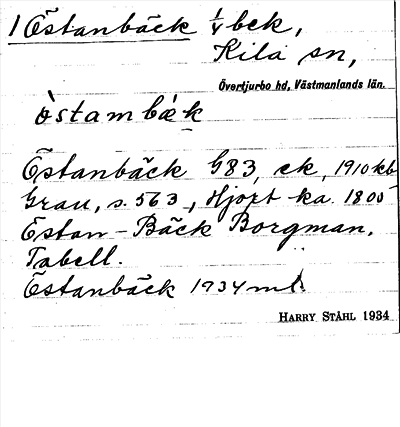 1 Östanbäck 1/4 bek,
Kila sn,
Övertjurbo hd, Västmanlands län.
östambäk
Östanbäck G83, ek, 1910 kb
Grau, s. 563, Hjort ka. 1800
Östan-Bäck Borgman,
Tabell.
Östanbäck 1934 ml.
HARRY STÅHL 1934